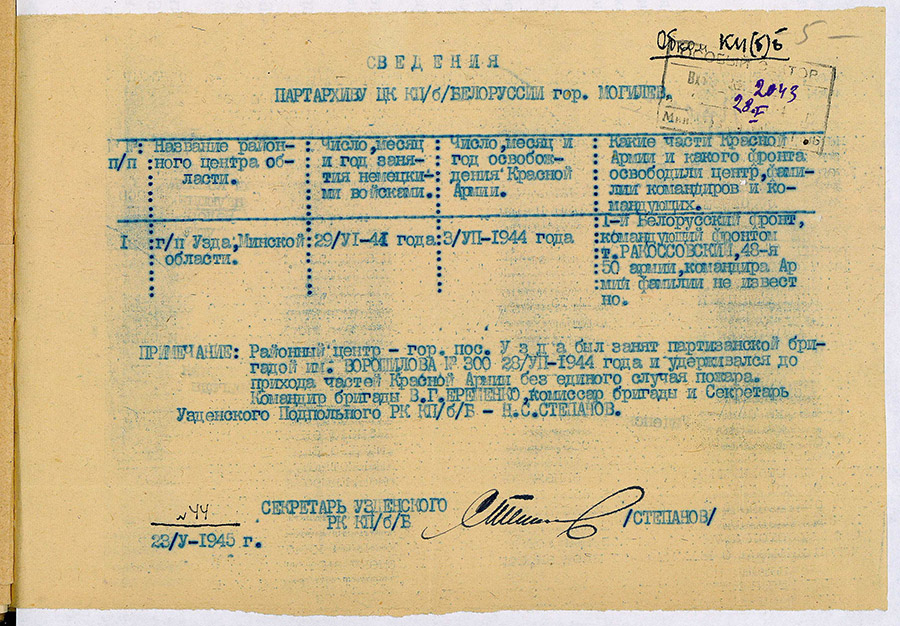 Обком КП(б)б 5-
ОСОБЫЙ СЕКТОР
2043
28.V
СВЕДЕНИЯ
ПАРТАРХИВУ ЦК КП/б/БЕЛОРУССИИ гор. МОГИЛЕВ.
п/п
Название район-
ного центра об-
ласти.
Число,месяц
и год заня-
тия немецки-
ми войсками.
Число,месяц и
год освобож-
дения Красной
Армии.
Какие части Красной
Армии и какого фронта
освободили центр,фами-
лии командиров и ко-
мандующих.
I
г/п Узда,Минской
области.
29/VI-41 года
3/УП-1944 года
I-й Белорусский фронт,
командующий фронтом
т.РАКОССОВСКИЙ,48-я
50 армии,командира Ар
мий фамилии не извест
но.
ПРИМЕЧАНИЕ: Районный центр - гор. пос. У з д а был занят партизанской бри-
гадой им. ВОРОШИЛОВА № 300 28/УП-1944 года и удерживался до
прихода частей Красной Армии без единого случая пожара.
Командир бригады В.Г.ЕРЕМЕНКО,комиссар бригады и Секретарь
Узденского Подпольного РК КП/б/Б - Н.С.СТЕПАНОВ.
№44
23/У-1945 г.
СЕКРЕТАРЬ УЗДЕНСКОГО
РК КП/б/Б
/СТЕПАНОВ/